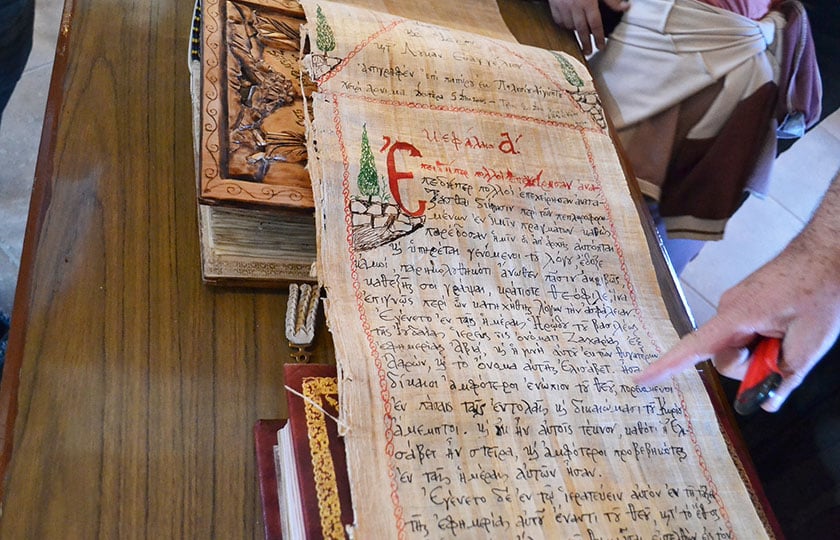 κτ Λουκᾶν Ευαγγέλιο
Κεφάλαιο Α.
Ἐπειδήπερ πολλοὶ ἐπεχείρησαν ανα
πειδήπερ πολλοὶ ἐπεχείρησαν ανατα
ξασθαι διήγησιν περὶ τῶν πεπληροφορη
μένων ἐν ἡμῖν πραγμάτων, καθὼς
παρέδοσαν ἡμῖν οἱ ἀπ' ἀρχῆς αὐτόπται
ϗ ὑπηρέται γενόμενοι τȣ λόγȣ ἔδοξε
κἀμοί, παρηκολουθηκότι ἄνωθεν πᾶσιν ἀκριβῶς
καθεξῆς σοι γράψαι, κράτιστε Θεόφιλε, ἵνα
ἐπιγνῷς περὶ ὧν κατηχήθης λόγων τὴν ἀσφάλειαν
Ἐγένετο ἐν ταῖς ἡμέραις Ἡρῴδου τȣ βασιλέως
τῆς Ἰουδαίας ἱερεύς τις ὀνόματι Ζαχαρίας ἐξ
ἐφημερίας Ἀβιά, ϗ ἡ γυνὴ αὐτȣ ἐκ τῶν θυγατέρων
Ἀαρών, ϗ τὸ ὄνομα αὐτῆς Ἐλισάβετ. Ἦσαν
δίκαιοι ἀμφότεροι ἐνώπιον τȣ Θεȣ, πορευόμενοι
ἐν πάσαις ταῖς ἐντολαῖς ϗ δικαιώμασι τȣ Κυρίου
ἄμεμπτοι. ϗ οὐκ ἦν αὐτοῖς τέκνον, καθότι ἡ Ἐλι
σάβετ ἦν στεῖρα, ϗ ἀμφότεροι προβεβηκότες
ἐν ταῖς ἡμέραις αὐτῶν ἦσαν.
Ἐγένετο δὲ ἐν τῷ ἱερατεύειν αὐτὸν ἐν τῇ τάξει
τῆς ἐφημερίας αὐτȣ ἔναντι τȣ Θεȣ, κατὰ τὸ ἔθος